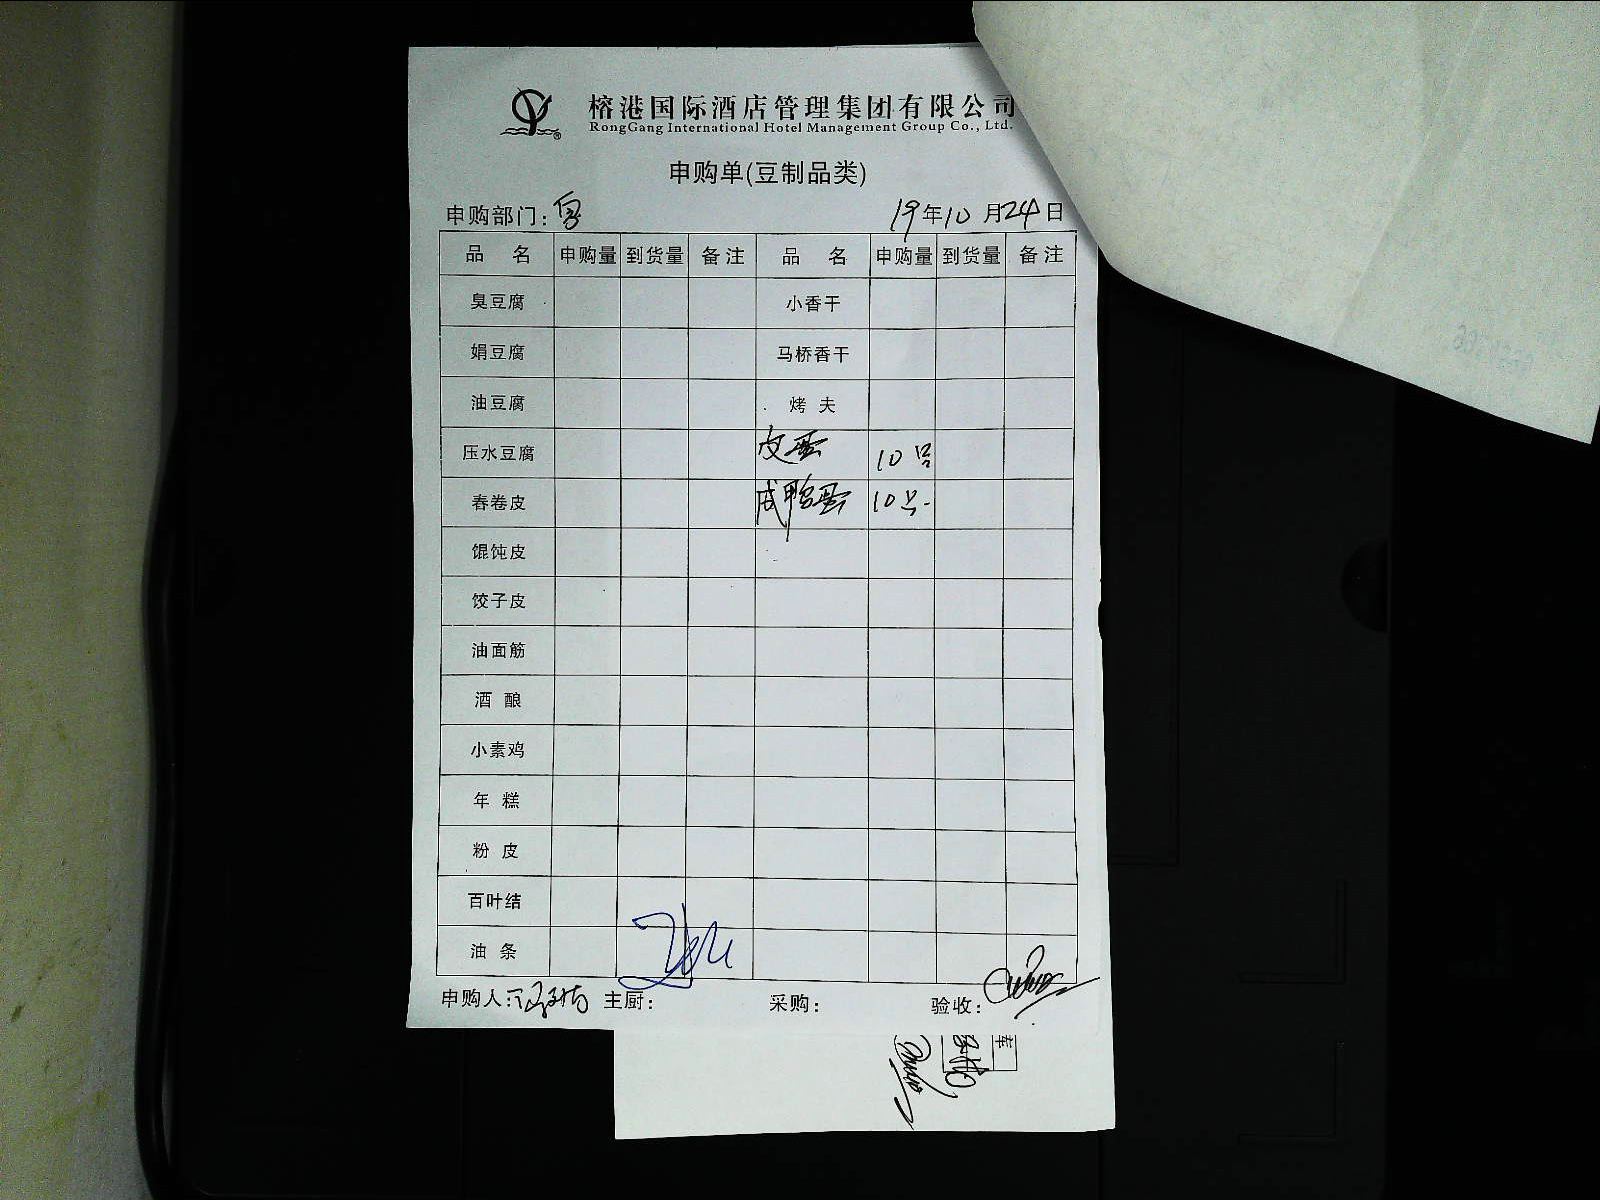 榕港国际酒店管理集团有限公司
RongGang International Hotel Management Group Co., Ltd.
申购单(豆制品类)
申购部门: 19年10月24日
品 名 申购量 到货量 备注 品 名 申购量 到货量 备注
臭豆腐 小香干
娟豆腐 马桥香干
油豆腐 烤 夫
压水豆腐 皮蛋 10
春卷皮 咸鸭蛋 10
馄饨皮
饺子皮
油面筋
酒 酿
小素鸡
年 糕
粉 皮
百叶结
油 条
申购人: 主厨: 采购: 验收: